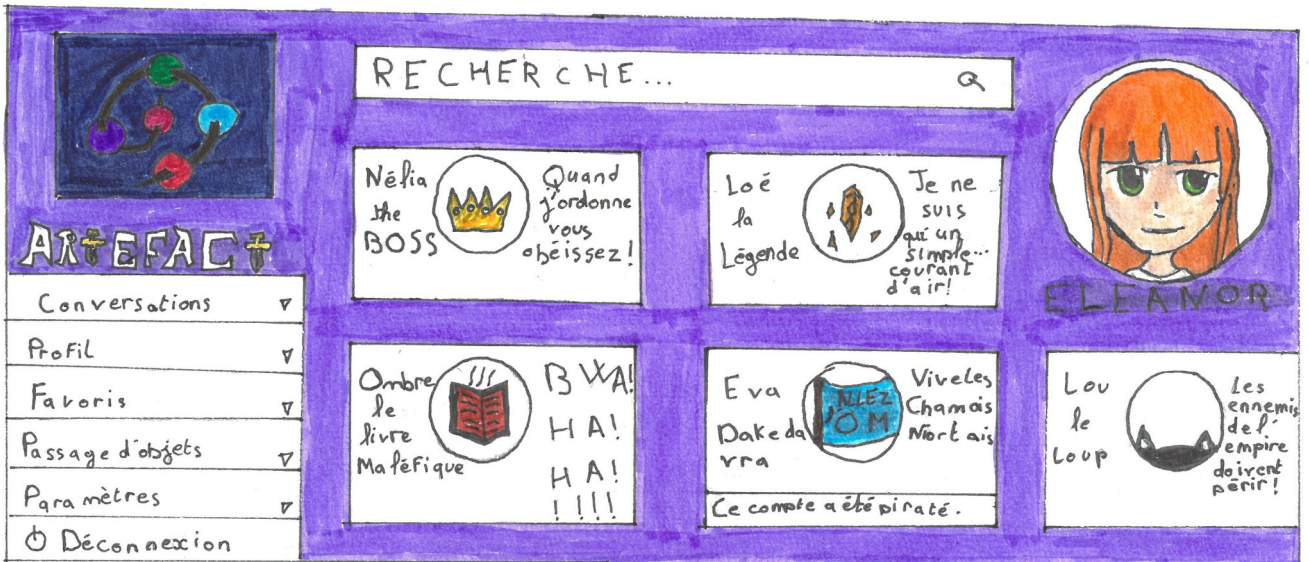 RECHERCHE...
ARTEFACT
Conversations
Profil
Favoris
Passage d'objets
Paramètres
Déconnexion
Nélia
the
BOSS
Quand
j'ordonne
vous
obéissez!
Loé
la
Légende
Je ne
suis
qu'un
simple...
courant
d'air!
ELEANOR
Ombre
le
livre
Maléfique
BWA!
HA!
HA!
!!!!
Eva
Dakeda
vra
ALLEZ
L'OM
Viveles
Chamois
Niortais
Ce compte a été piraté.
Lou
le
Loup
Les
ennemis
de l'
empire
doivent
périr!